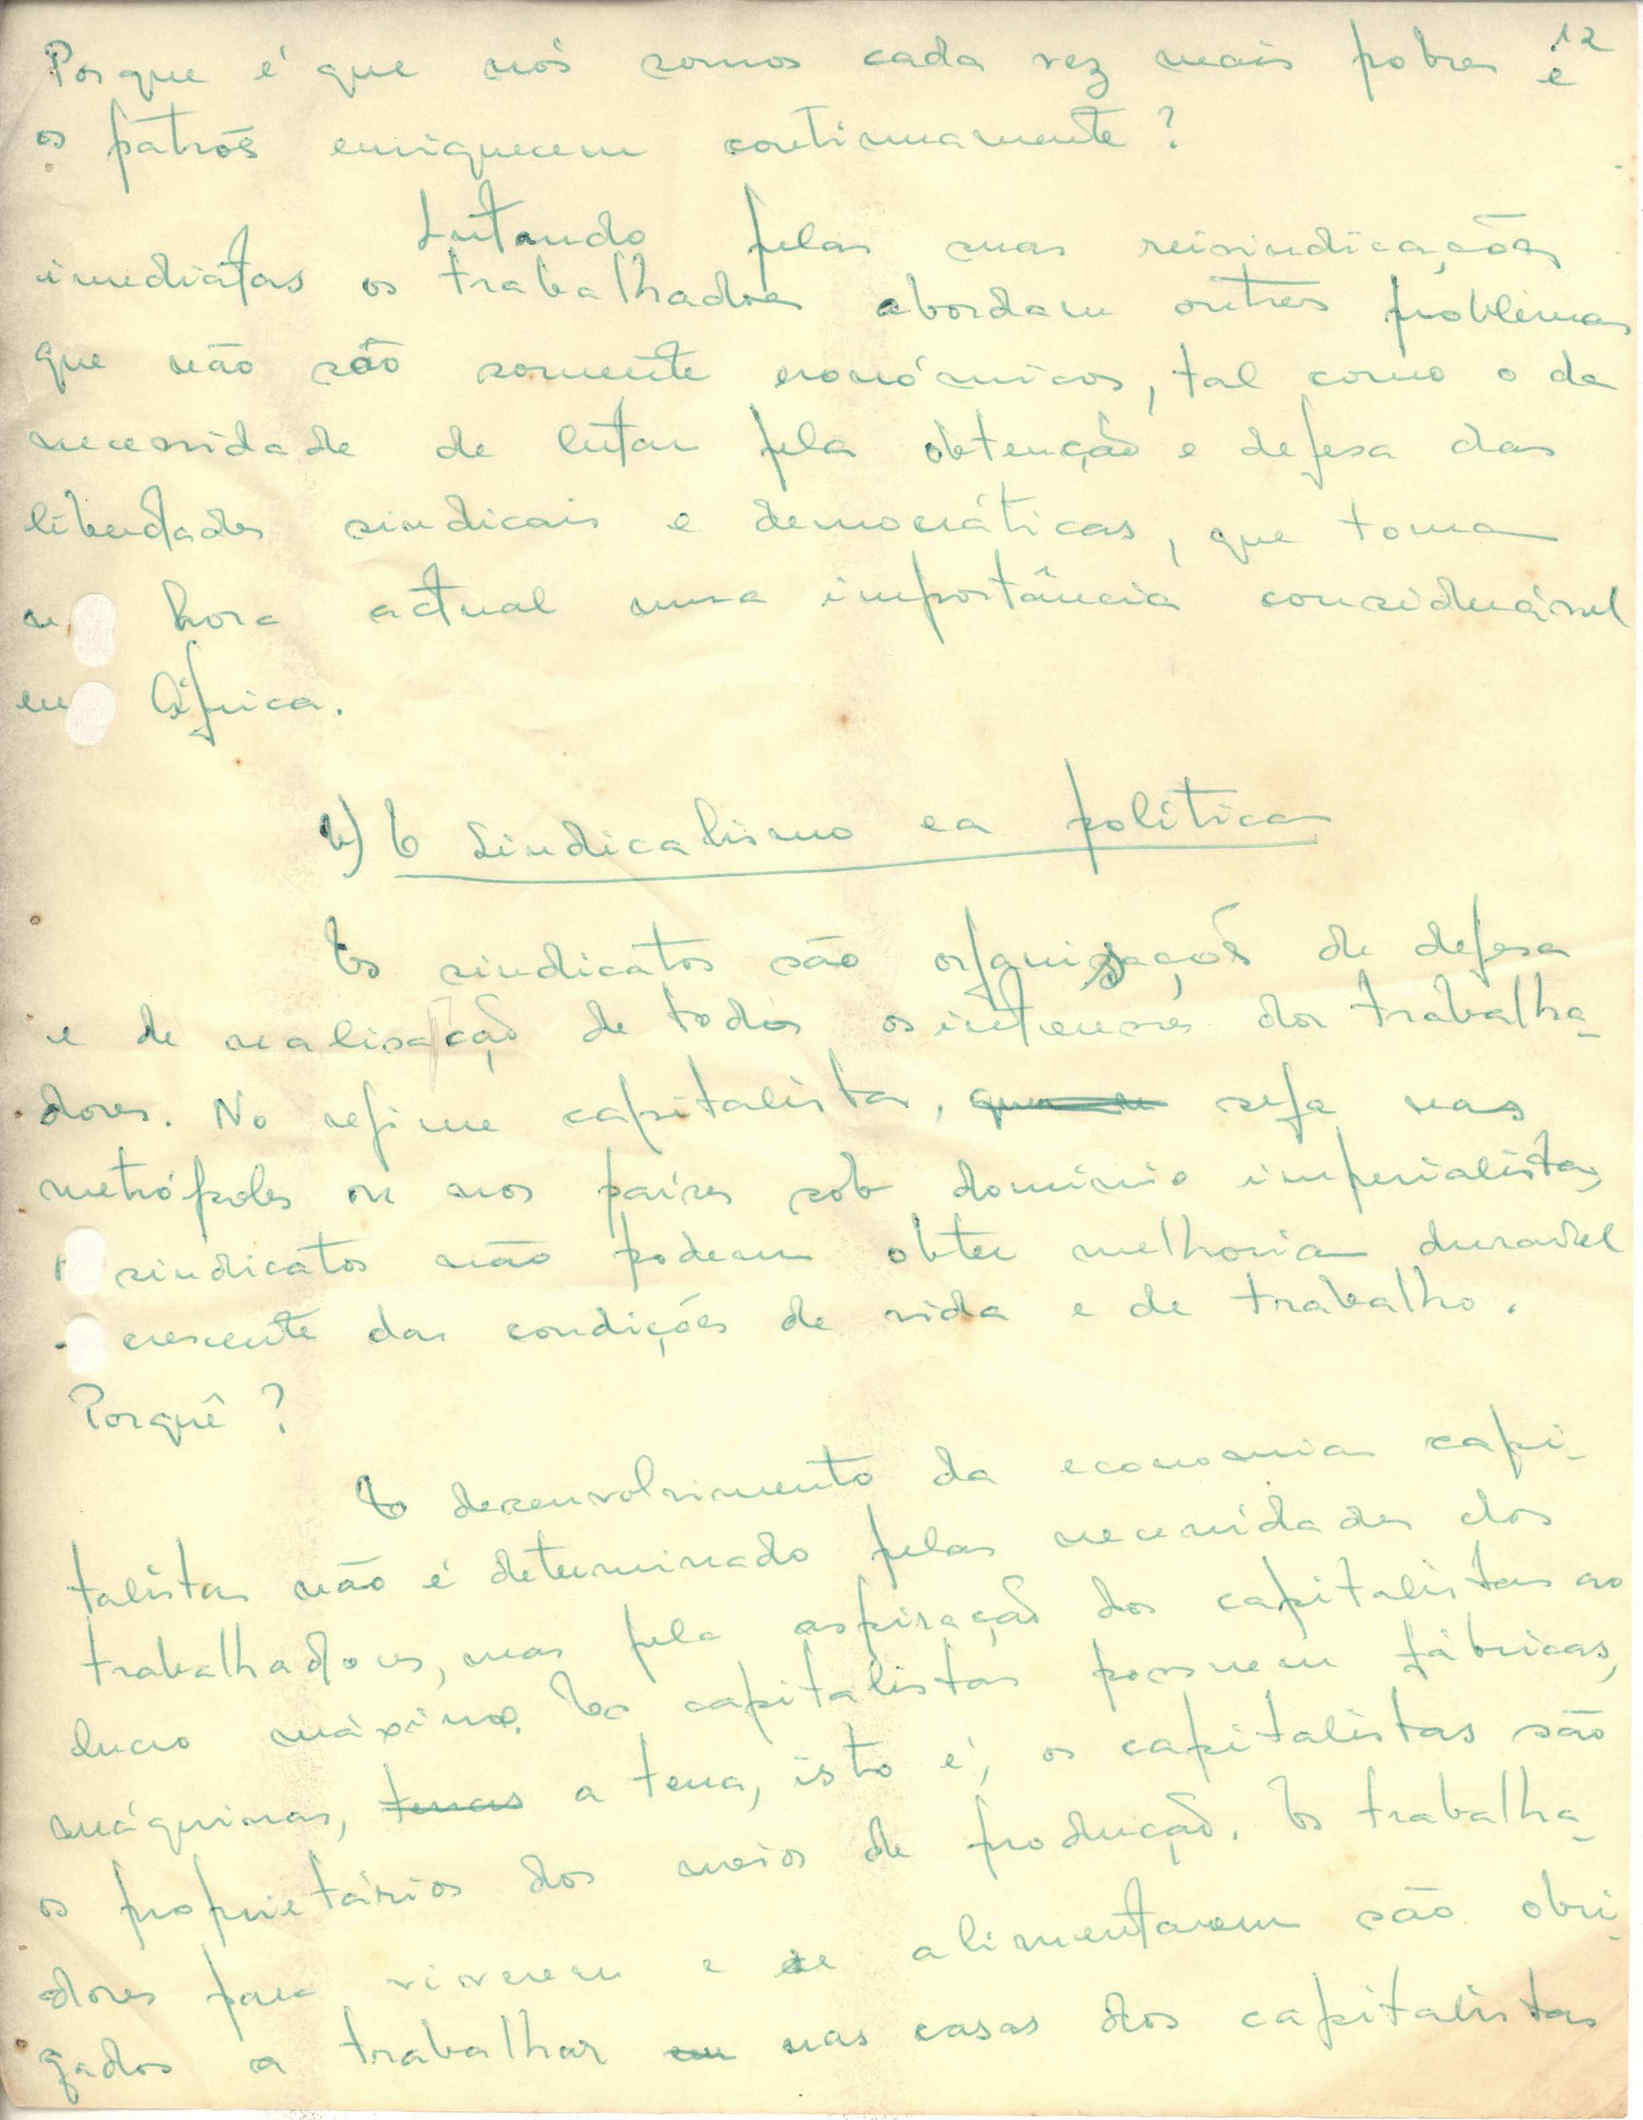 12
Porque é que nós somos cada vez mais pobres e
os patrões enriquecem continuamente?
Lutando pelas suas reivindicações
imediatas os trabalhadores abordam outros problemas
que não são somente económicos, tal como o da
necessidade de lutar pela obtenção e defesa das
liberdades sindicais e democráticas, que toma
n hora actual uma importância considerável
em África.
b) O Sindicalismo e a política
Os sindicatos são organizações de defesa
e de realisação de todos os interesses dos trabalha-
dores. No regime capitalista, seja nas
metrópoles ou nos países sob domínio imperialista,
sindicatos não podem obter melhoria duravel
crescente das condições de vida e de trabalho.
Porquê?
O desenvolvimento da economia capi-
talista não é determinado pelas necessidades dos
trabalhadores, mas pela aspiração dos capitalistas ao
lucro máximo. Os capitalistas possuem fábricas,
máquinas, terras a terra, isto é, os capitalistas são
os proprietários dos meios de produção. Os trabalha-
dores para viverem e se alimentarem são obri-
gados a trabalhar em nas casas dos capitalistas